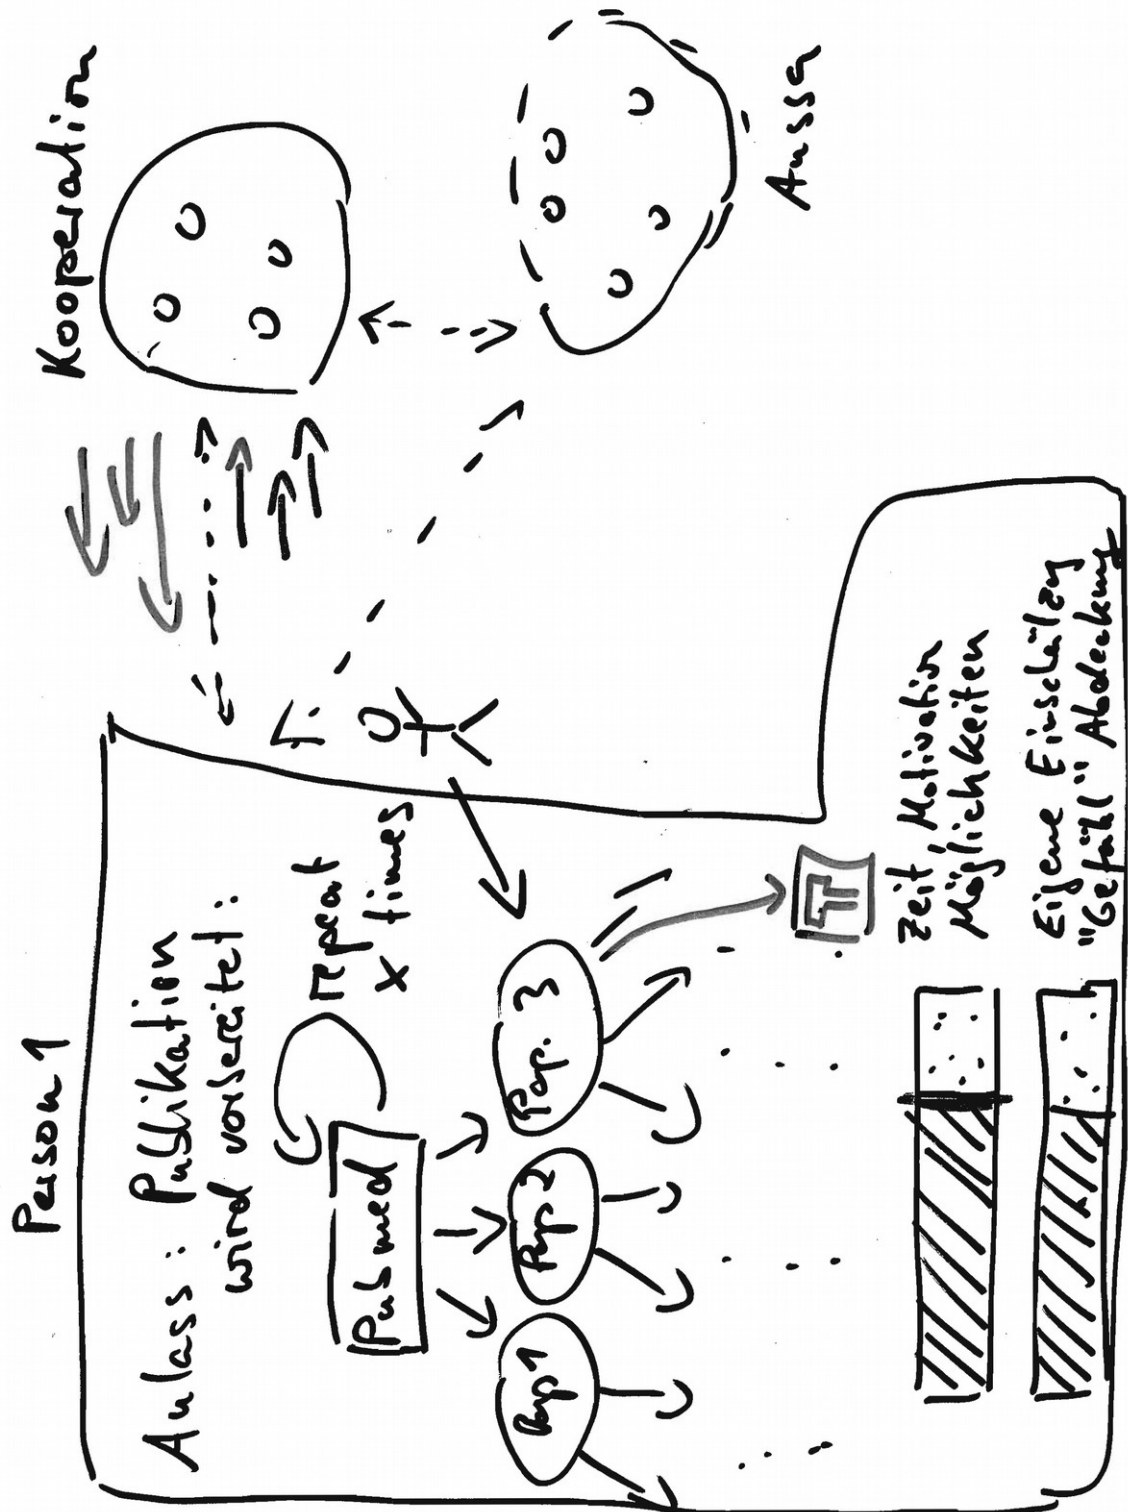 Person 1
Anlass: Publikation
wird vorbereitet:
Pubmed
repeat
x times
Pap 1
Pap 2
Pap. 3
Zeit, Motivation
Möglichkeiten
Eigene Einschätzung
"Gefühl" Abdeckung
Kooperation